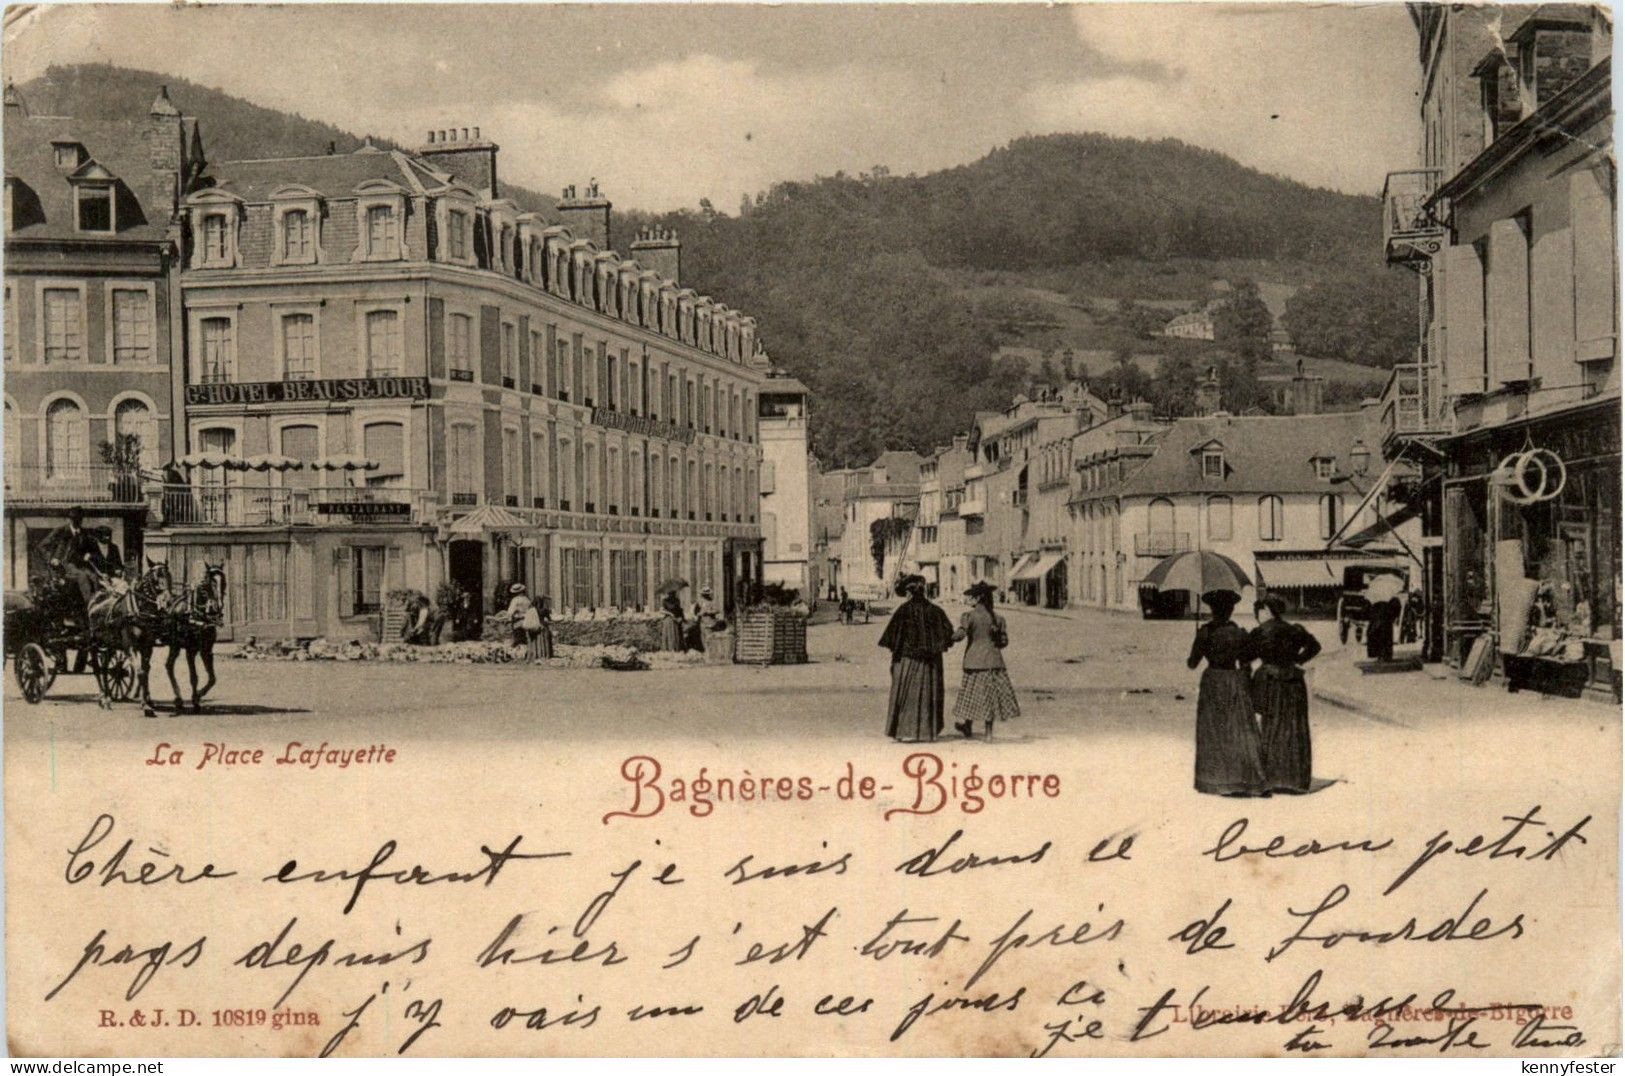 Gd HOTEL BEAU-SEJOUR
RESTAURANT
La Place Lafayette
Bagnères-de-Bigorre
Chère enfant je suis dans ce beau petit
pays depuis hier s'est tout près de Lourdes
j'y vais un de ces jours ci
je t'embrasse
R. & J. D. 10819 gina
Librairie Bagnères-de-Bigorre
ta
kennyfester